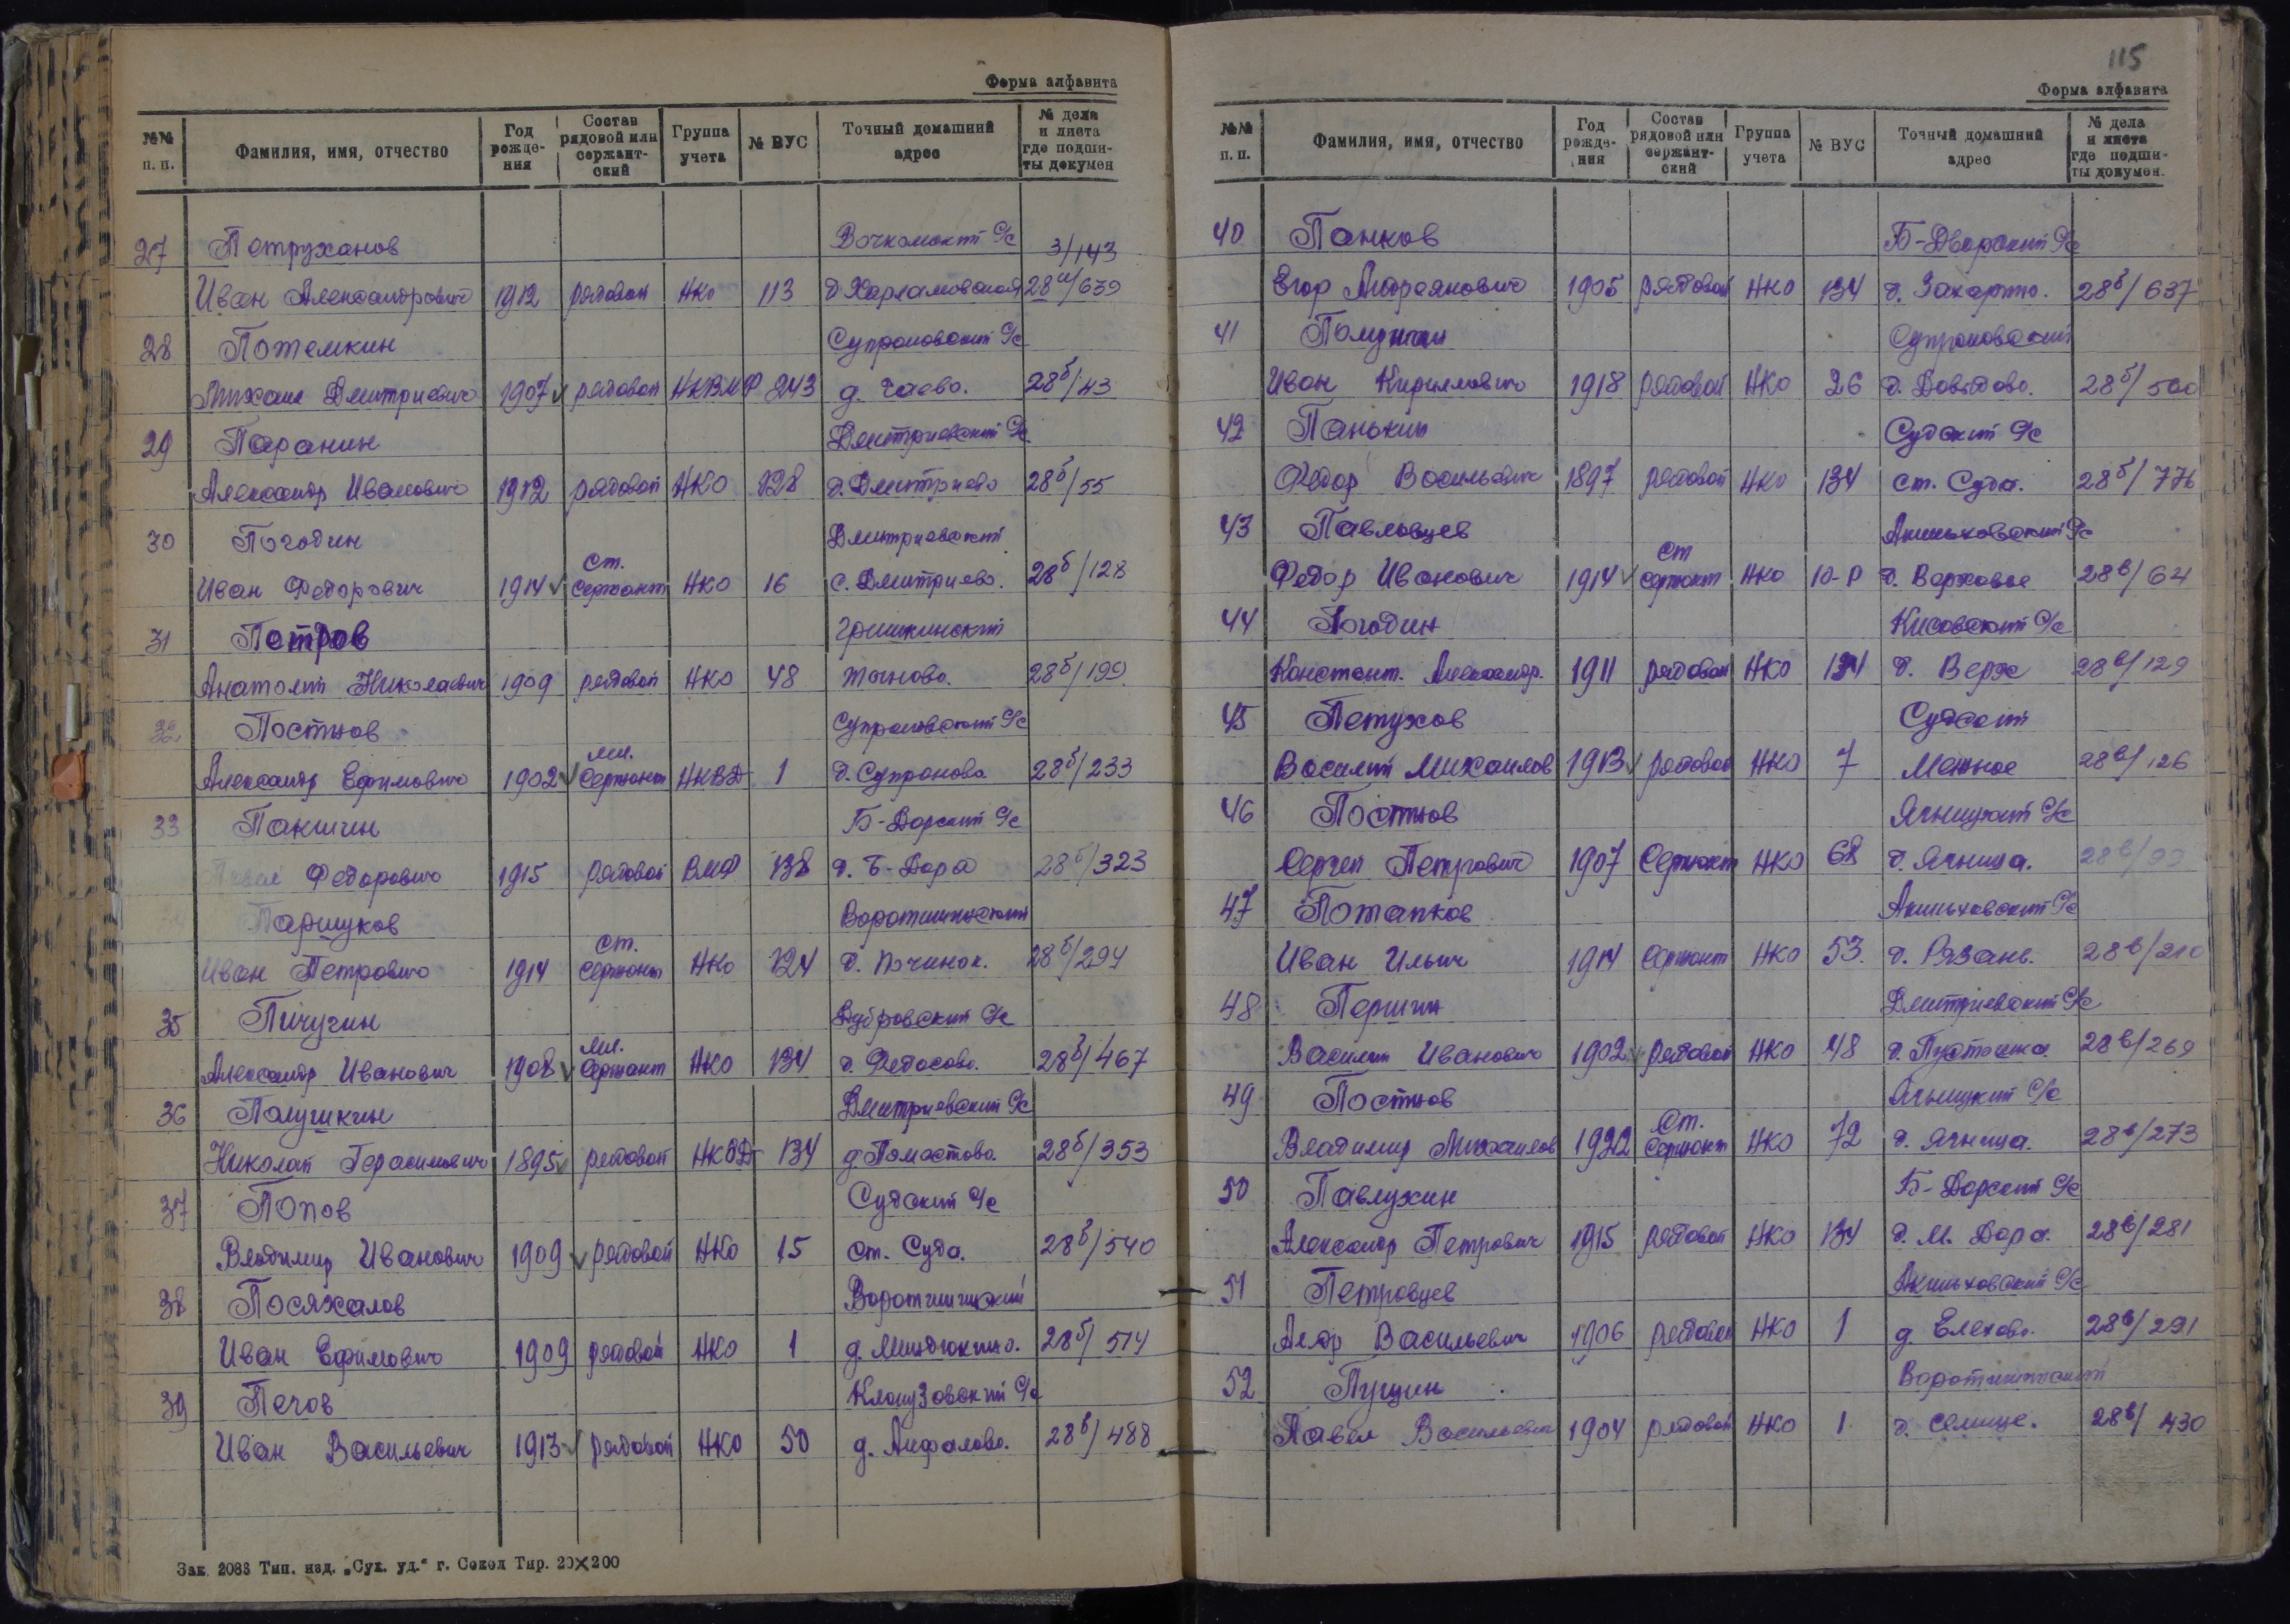 Форма алфавита
№№ п. п. Фамилия, имя, отчество Год рожде-ния Состав рядовой или сержант-ский Группа учета № ВУС Точный домашний адрес № дела и листа где подши-ты докумен
27 Петруханов 3/143
Иван Александрович 1912 рядовой НКО 113 д. Харламовская 28а/639
28 Потемкин Супроновский С/с
Михаил Дмитриевич 1907 рядовой НКВМФ 243 д. Гаево. 28б/43
29 Паранин Дмитриевский С/с
Александр Иванович 1912 рядовой НКО 128 д. Дмитриево 28б/55
30 Погодин Дмитриевский
Иван Федорович 1914 ст. сержант НКО 16 с. Дмитриево. 28б/128
31 Петров Гришкинский
Анатолий Николаевич 1909 рядовой НКО 48 28б/199
32 Постнов Супроновский С/с
Александр Ефимович 1902 мл. сержант НКВД 1 д. Супроново 28б/233
33 Пакшин Б-Дорский С/с
Павел Федорович 1915 рядовой ВМФ 138 д. Б-Дора 28б/323
Паршуков Воротишинский
Иван Петрович 1914 ст. сержант НКО 124 д. Починок. 28б/294
35 Пичугин Дубровский С/с
Александр Иванович 1908 мл. сержант НКО 134 д. Федосово. 28б/467
36 Полушкин Дмитриевский С/с
Николай Герасимович 1895 рядовой НКВД 134 28б/353
37 Попов Судский С/с
Владимир Иванович 1909 рядовой НКО 15 ст. Суда. 28б/540
38 Посяхалов Воротишинский
Иван Ефимович 1909 рядовой НКО 1 д. Миндюкино. 28б/514
39 Печов Клоузовский С/с
Иван Васильевич 1913 рядовой НКО 50 д. Анфалово. 28б/488
Зак. 2088 Тип. изд. „Сух. уд.“ г. Сокол Тир. 20×200
115
Форма алфавита
№№ п. п. Фамилия, имя, отчество Год рожде-ния Состав рядовой или сержант-ский Группа учета № ВУС Точный домашний адрес № дела и листа где подши-ты докумен.
40 Панков Б-Дворский С/с
Егор Андреянович 1905 рядовой НКО 134 28б/637
41 Супроновский
Иван Кириллович 1918 рядовой НКО 26 д. Давыдово. 28б/500
42 Панькин Судский С/с
Федор Васильевич 1897 рядовой НКО 134 ст. Суда. 28б/776
43 Павловцев Акиньховский С/с
Федор Иванович 1914 ст сержант НКО 10-Р д. Верховье 28в/64
44 Погодин Кисовский С/с
Констант. Александр. 1911 рядовой НКО 134 д. Верх 28в/129
45 Петухов Судский
Василий Михайлов 1913 рядовой НКО 7 Межное 28в/126
46 Постнов Ягницкий С/с
Сергей Петрович 1907 Сержант НКО 68 д. Ягница. 28в/99
47 Потапков Акиньховский С/с
Иван Ильич 1914 сержант НКО 53. д. Рязань. 28в/210
48 Першин Дмитриевский С/с
Василий Иванович 1902 рядовой НКО 48 д. Пустошка. 28в/269
49 Постнов Ягницкий С/с
Владимир Михайлов 1922 Ст. сержант НКО 72 д. Ягница. 28в/273
50 Павлухин Б-Дорский С/с
Александр Петрович 1915 рядовой НКО 134 д. М. Дора. 28в/281
51 Петровцев Акиньховский С/с
Васильевич 1906 рядовой НКО 1 д. Елехово. 28в/291
52 Пущин Воротишинский
Павел Васильевич 1904 рядовой НКО 1 д. Селище. 28в/430